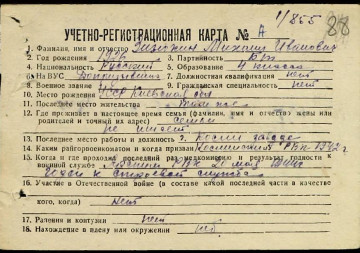 1/855
88
УЧЕТНО-РЕГИСТРАЦИОННАЯ КАРТА № А
1. Фамилия, имя и отчество Михаил Иванович
2. Год рождения 1926 3. Партийность б/п
4. Национальность Русский 5. Образование 4 класса
6. На ВУС 7. Должностная квалификация нет
8. Военное звание 9. Гражданская специальность нет
10. Место рождения УССР Киевская обл.
11. Последнее место жительства
12. Где проживает в настоящее время семья (фамилия, имя и отчество) жены или
родителей и точный их адрес) семьи
не имеет
13. Последнее место работы и должность
14. Каким райгорвоенкоматом когда призван РВК 1942 г.
15. Когда и где проходил последний раз медкомиссию и результат годности к
военной службе РВК 20 мая
годен к строевой службе
16. Участие в Отечественной войне (в составе какой последней части и в качестве
кого, когда) нет
17. Ранения и контузии нет
18. Нахождение в плену или окружении нет